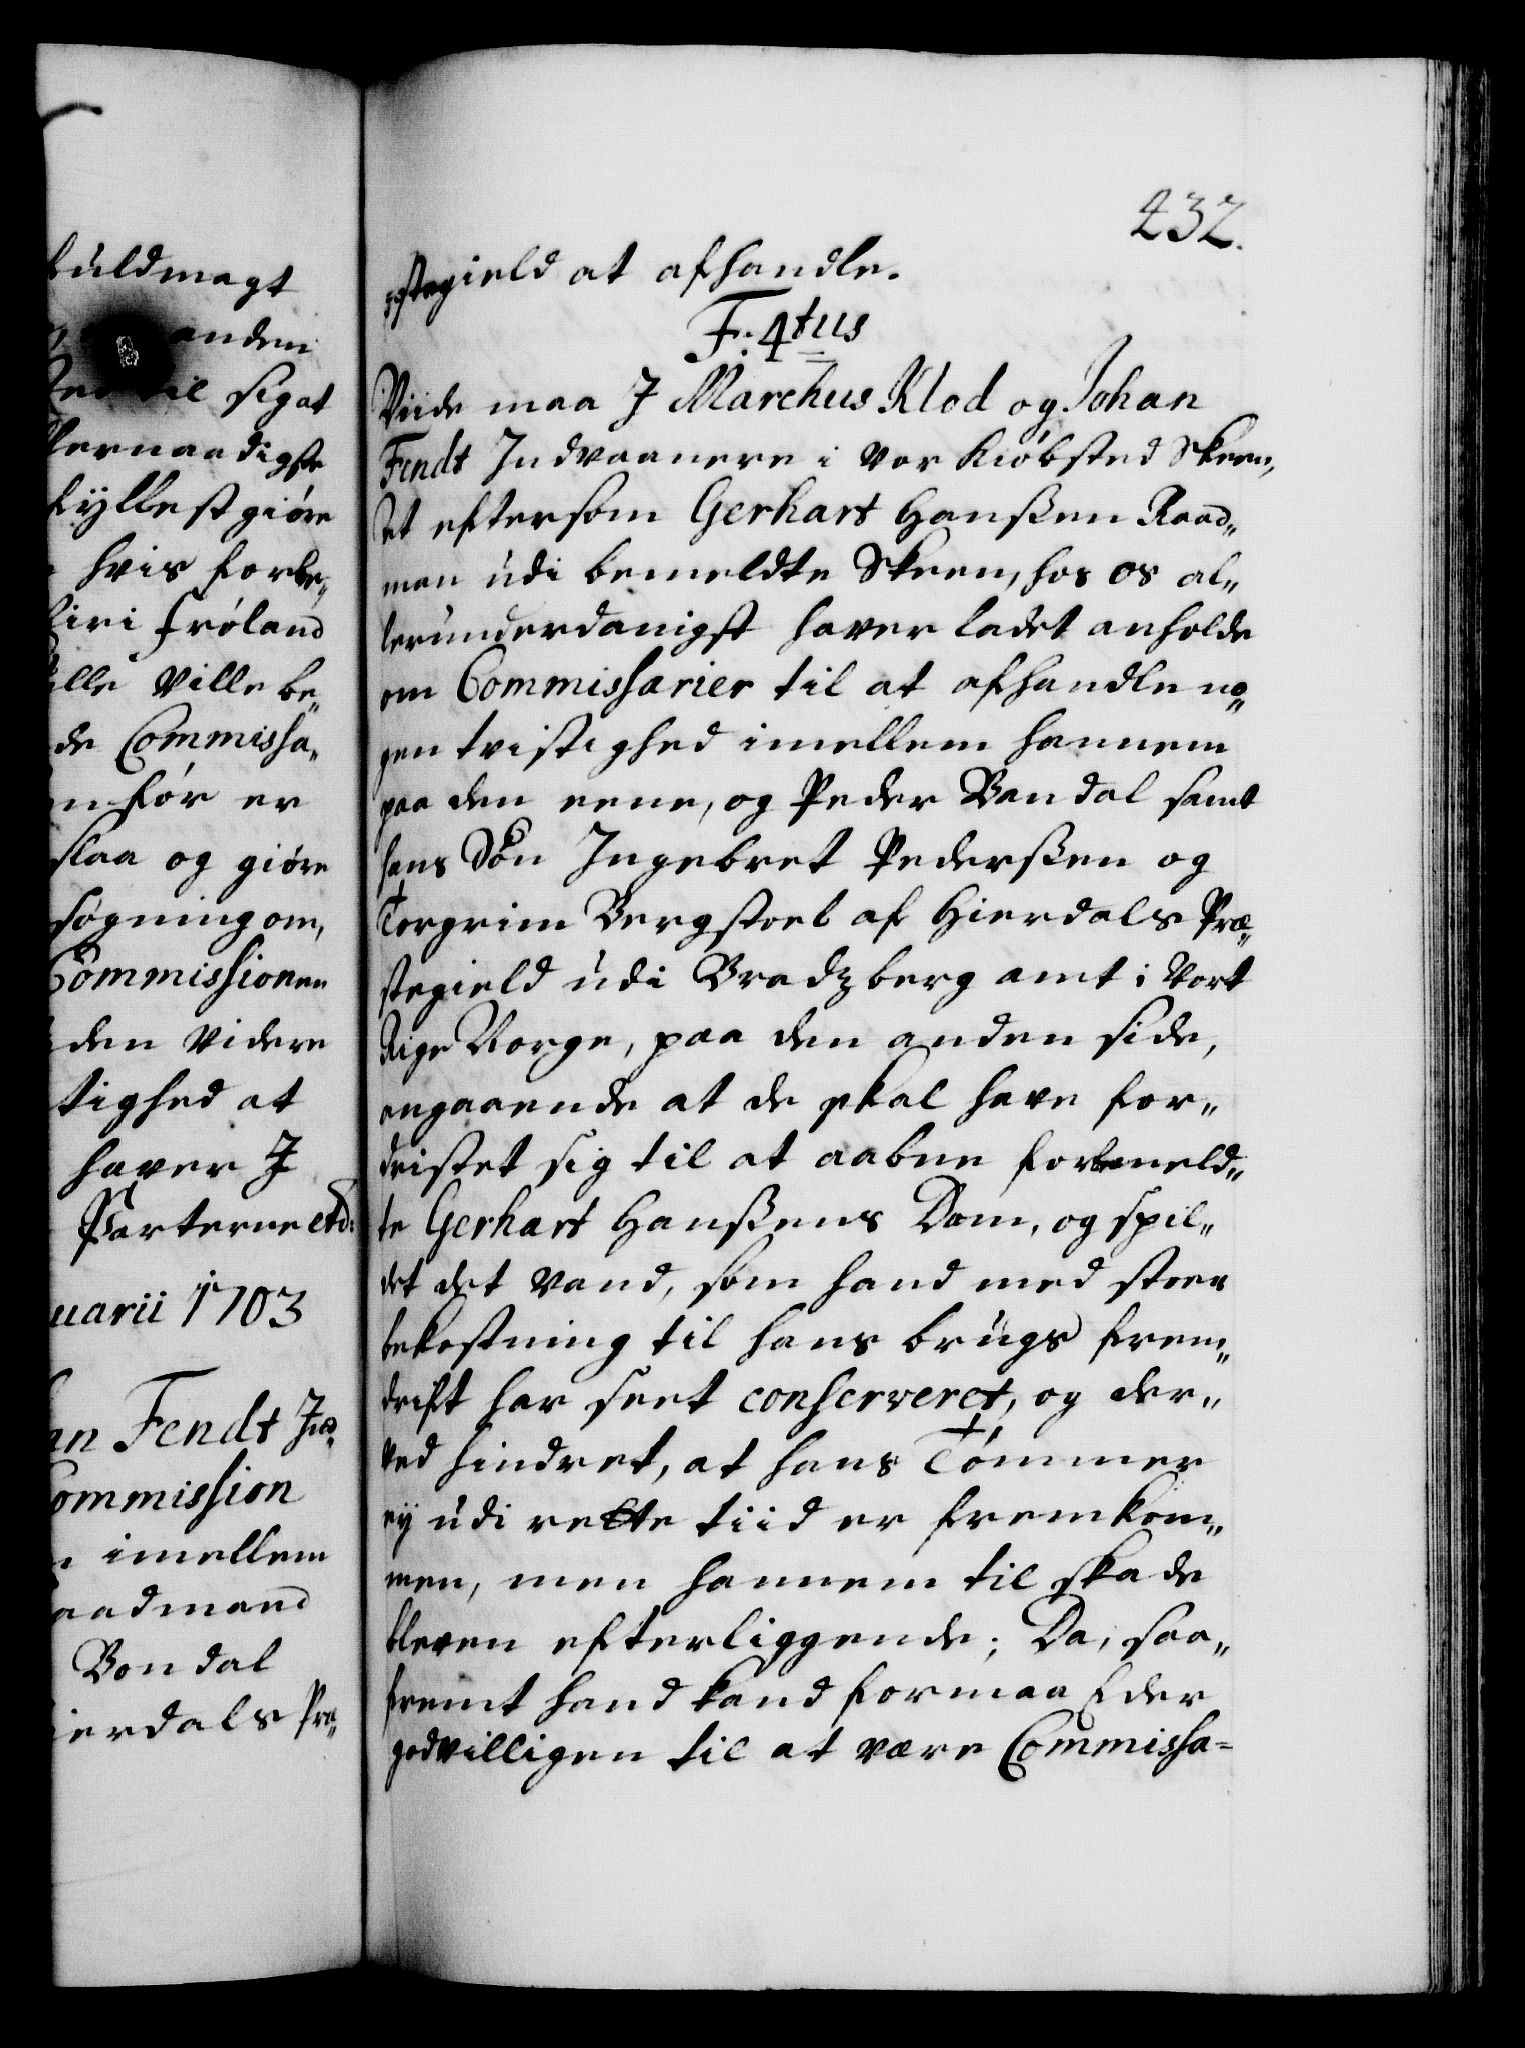 fuldmagt
anden
til sig at
lernaadigste
fyllest giøre
hvis forbe„
Siri Frøland
ville be„
de Commissa„
før er
slaa og giøre
søgning om,
Commissionen
den videre
tighed at
haver I
Parterne etc:
uarii 1703
an Fendt Ind„
Commission
imellem
aadmand
Bondal
ierdals Præ„
232.
stegield at afhandle.
F. 4tus
Viide maa I Marchus Klod og Johan
Fendt Indvaanere i vor Kiøbsted Skeen,
At eftersom Gerhart Hanßen Raad„
man udi bemeldte Skeen, hos os al„
lerunderdanigst haver ladet anholde
om Commissarier til at afhandle no„
gen tvistighed imellem hannem
paa den eene, og Peder Bandal samt
hans Søn Ingebret Pederßen og
Torgrim Bergstoel af Hierdals Præ„
stegield udi Bradzberg amt i Vort
Rige Norge, paa den anden side,
angaaende at de skal have for„
dristet sig til at aabne forbemeld„
te Gerhart Hanßens Dam, og spil„
det det vand, som hand med stoer
bekostning til hans brugs frem„
drift har seet conserveret, og der„
ved hindret, at hans Tømmer
ey udi rette tiid er fremkom„
men, men hannem til skade
bleven efterliggende; Da, saa„
fremt hand kand formaa Eder
godvilligen til at være Commissa=